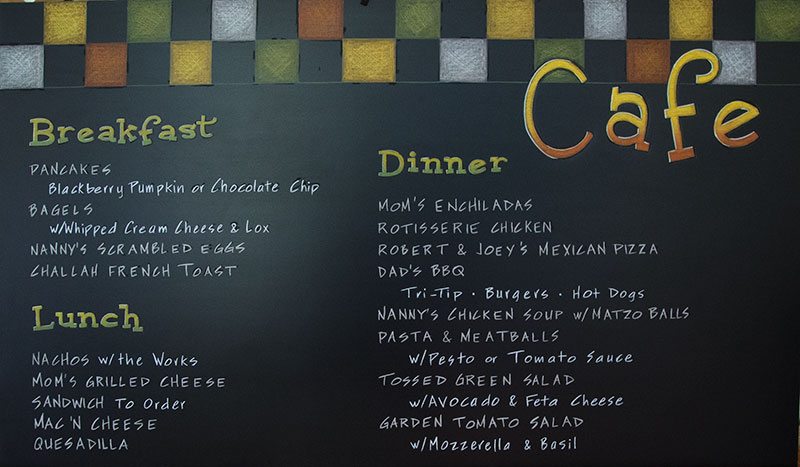 Cafe
Breakfast
PANCAKES
Blackberry Pumpkin or Chocolate Chip
BAGELS
w/Whipped Cream Cheese & Lox
NANNY'S SCRAMBLED EGGS
CHALLAH FRENCH TOAST
Lunch
NACHOS w/the Works
MOM'S GRILLED CHEESE
SANDWICH To Order
MAC 'N CHEESE
QUESADILLA
Dinner
MOM'S ENCHILADAS
ROTISSERIE CHICKEN
ROBERT & JOEY'S MEXICAN PIZZA
DAD'S BBQ
Tri-Tip · Burgers · Hot Dogs
NANNY'S CHICKEN SOUP w/MATZO BALLS
PASTA & MEATBALLS
w/Pesto or Tomato Sauce
TOSSED GREEN SALAD
w/Avocado & Feta Cheese
GARDEN TOMATO SALAD
w/Mozzerella & Basil